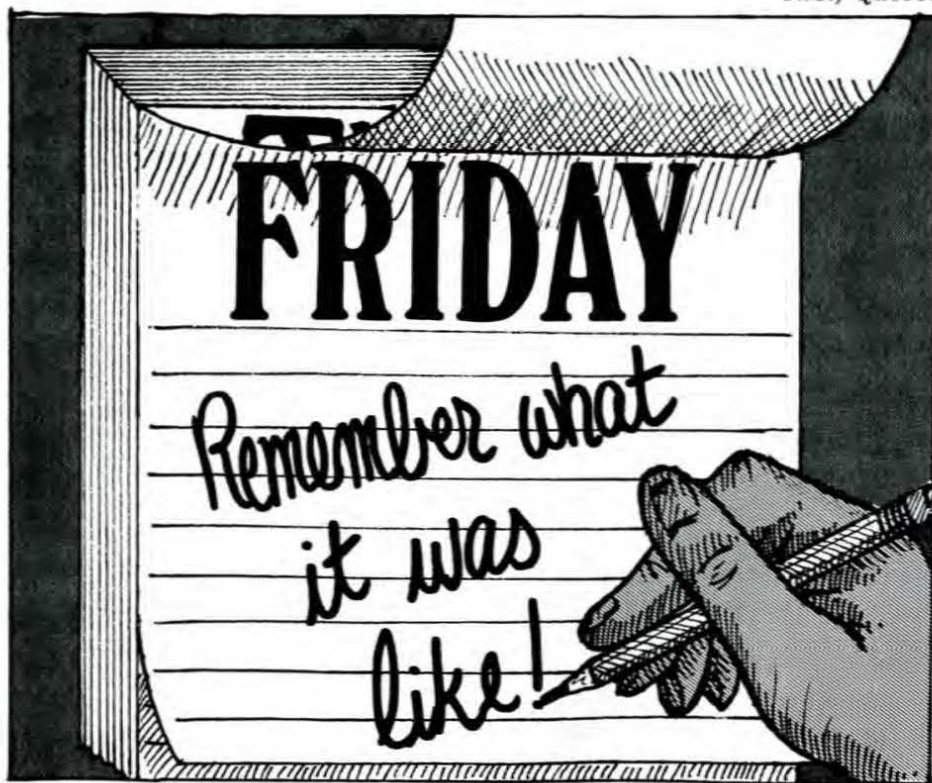 FRIDAY
Remember what
it was
like!